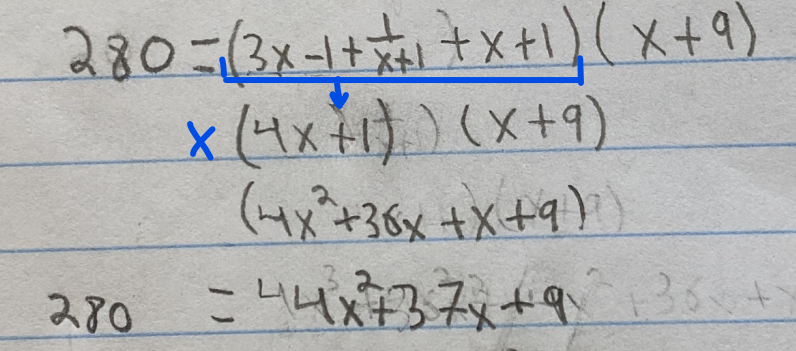 280 = (3x-1+1/(x+1)+x+1)(x+9)
x (4x+1) (x+9)
(4x²+36x+x+9)
280 = 44x²+37x+9